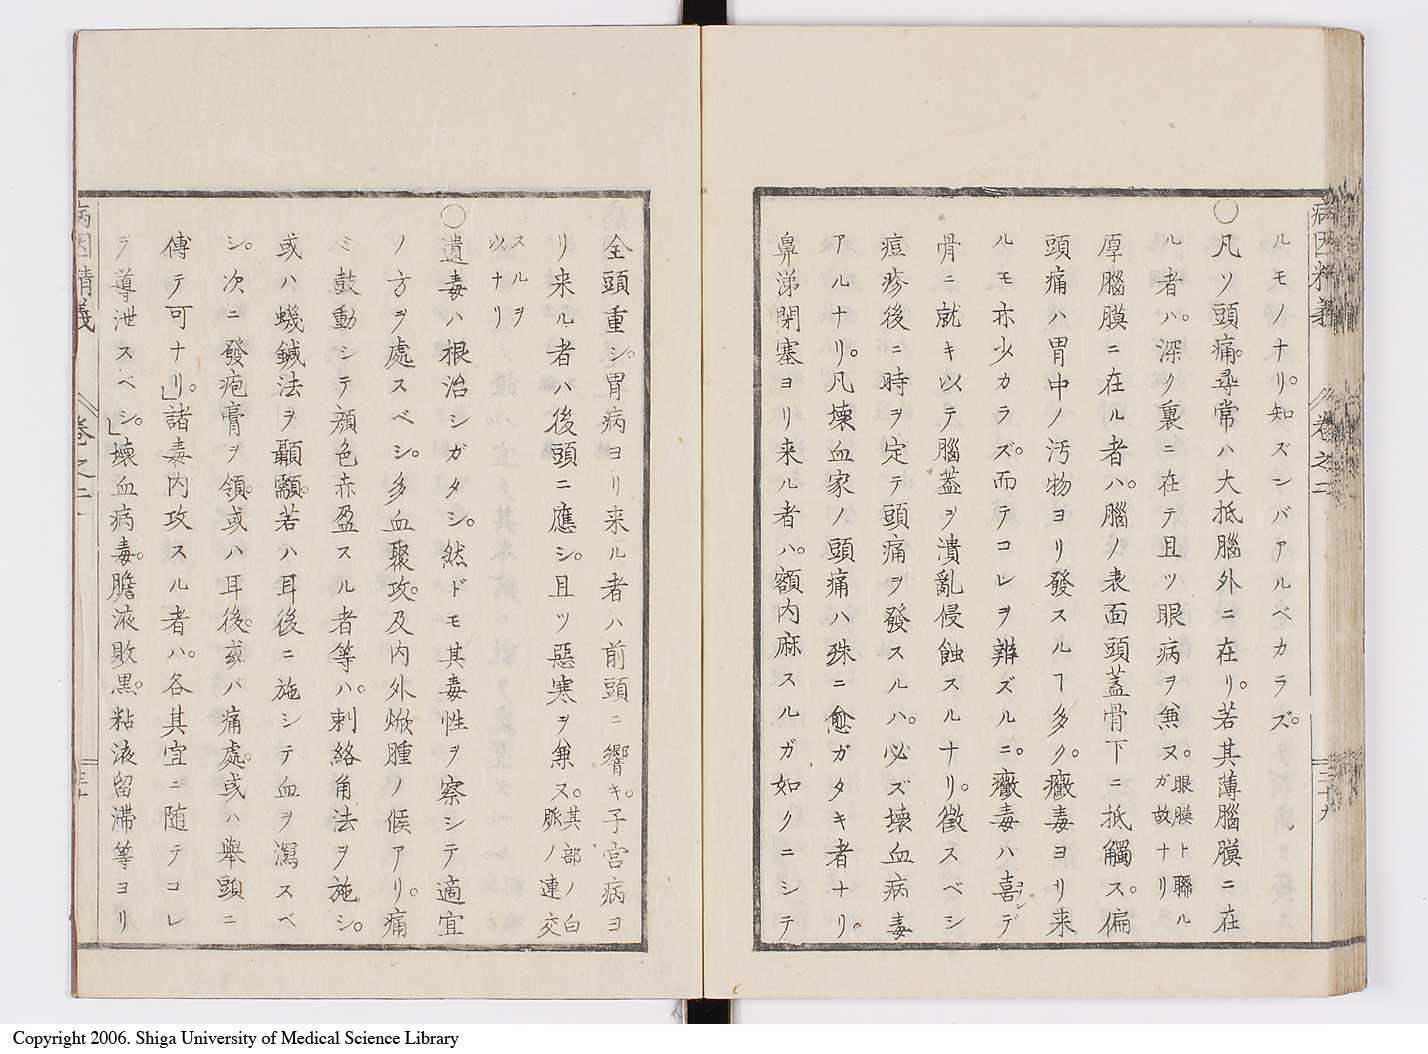 病因精義 卷之二 三十九
ルモノナリ。知ズンバアルベカラズ。
〇凡ソ頭痛。尋常ハ大抵腦外ニ在リ。若其薄腦膜ニ在
ル者ハ。深ク裏ニ在テ且ツ眼病ヲ兼ヌ。眼膜ト聯ルガ故ナリ
厚腦膜ニ在ル者ハ。腦ノ表面頭蓋骨下ニ抵觸ス。偏
頭痛ハ胃中ノ汚物ヨリ發スルヿ多ク。黴毒ヨリ来
ルモ亦少カラズ。而テコレヲ辨ズルニ。黴毒ハ喜ンデ
骨ニ就キ以テ腦蓋ヲ潰亂侵蝕スルナリ。徴スベシ
痘疹後ニ時ヲ定テ頭痛ヲ發スルハ。必ズ壊血病毒
アルナリ。凡壊血家ノ頭痛ハ殊ニ愈ガタキ者ナリ。
鼻涕閉塞ヨリ来ル者ハ。額内麻スルガ如クニシテ
全頭重シ。胃病ヨリ来ル者ハ前頭ニ響キ。子宮病ヨ
リ来ル者ハ後頭ニ應シ。且ツ惡寒ヲ兼ス。其部ノ白脈ノ連交
スルヲ以ナリ
〇遺毒ハ根治シガタシ。然ドモ其毒性ヲ察シテ適宜
ノ方ヲ處スベシ。多血聚攻。及内外焮腫ノ候アリ。痛
ミ鼓動シテ顔色赤盈スル者等ハ。刺絡角法ヲ施シ。
或ハ蜞鍼法ヲ顳顬。若ハ耳後ニ施シテ血ヲ瀉スベ
シ。次ニ發疱膏ヲ領。或ハ耳後。或ハ痛處。或ハ舉頭ニ
傳テ可ナリ。」諸毒内攻スル者ハ。各其宜ニ随テコレ
ヲ導泄スベシ。」壊血病毒。膽液敗黒。粘液留滞等ヨリ
病因精義 卷之二
Copyright 2006. Shiga University of Medical Science Library